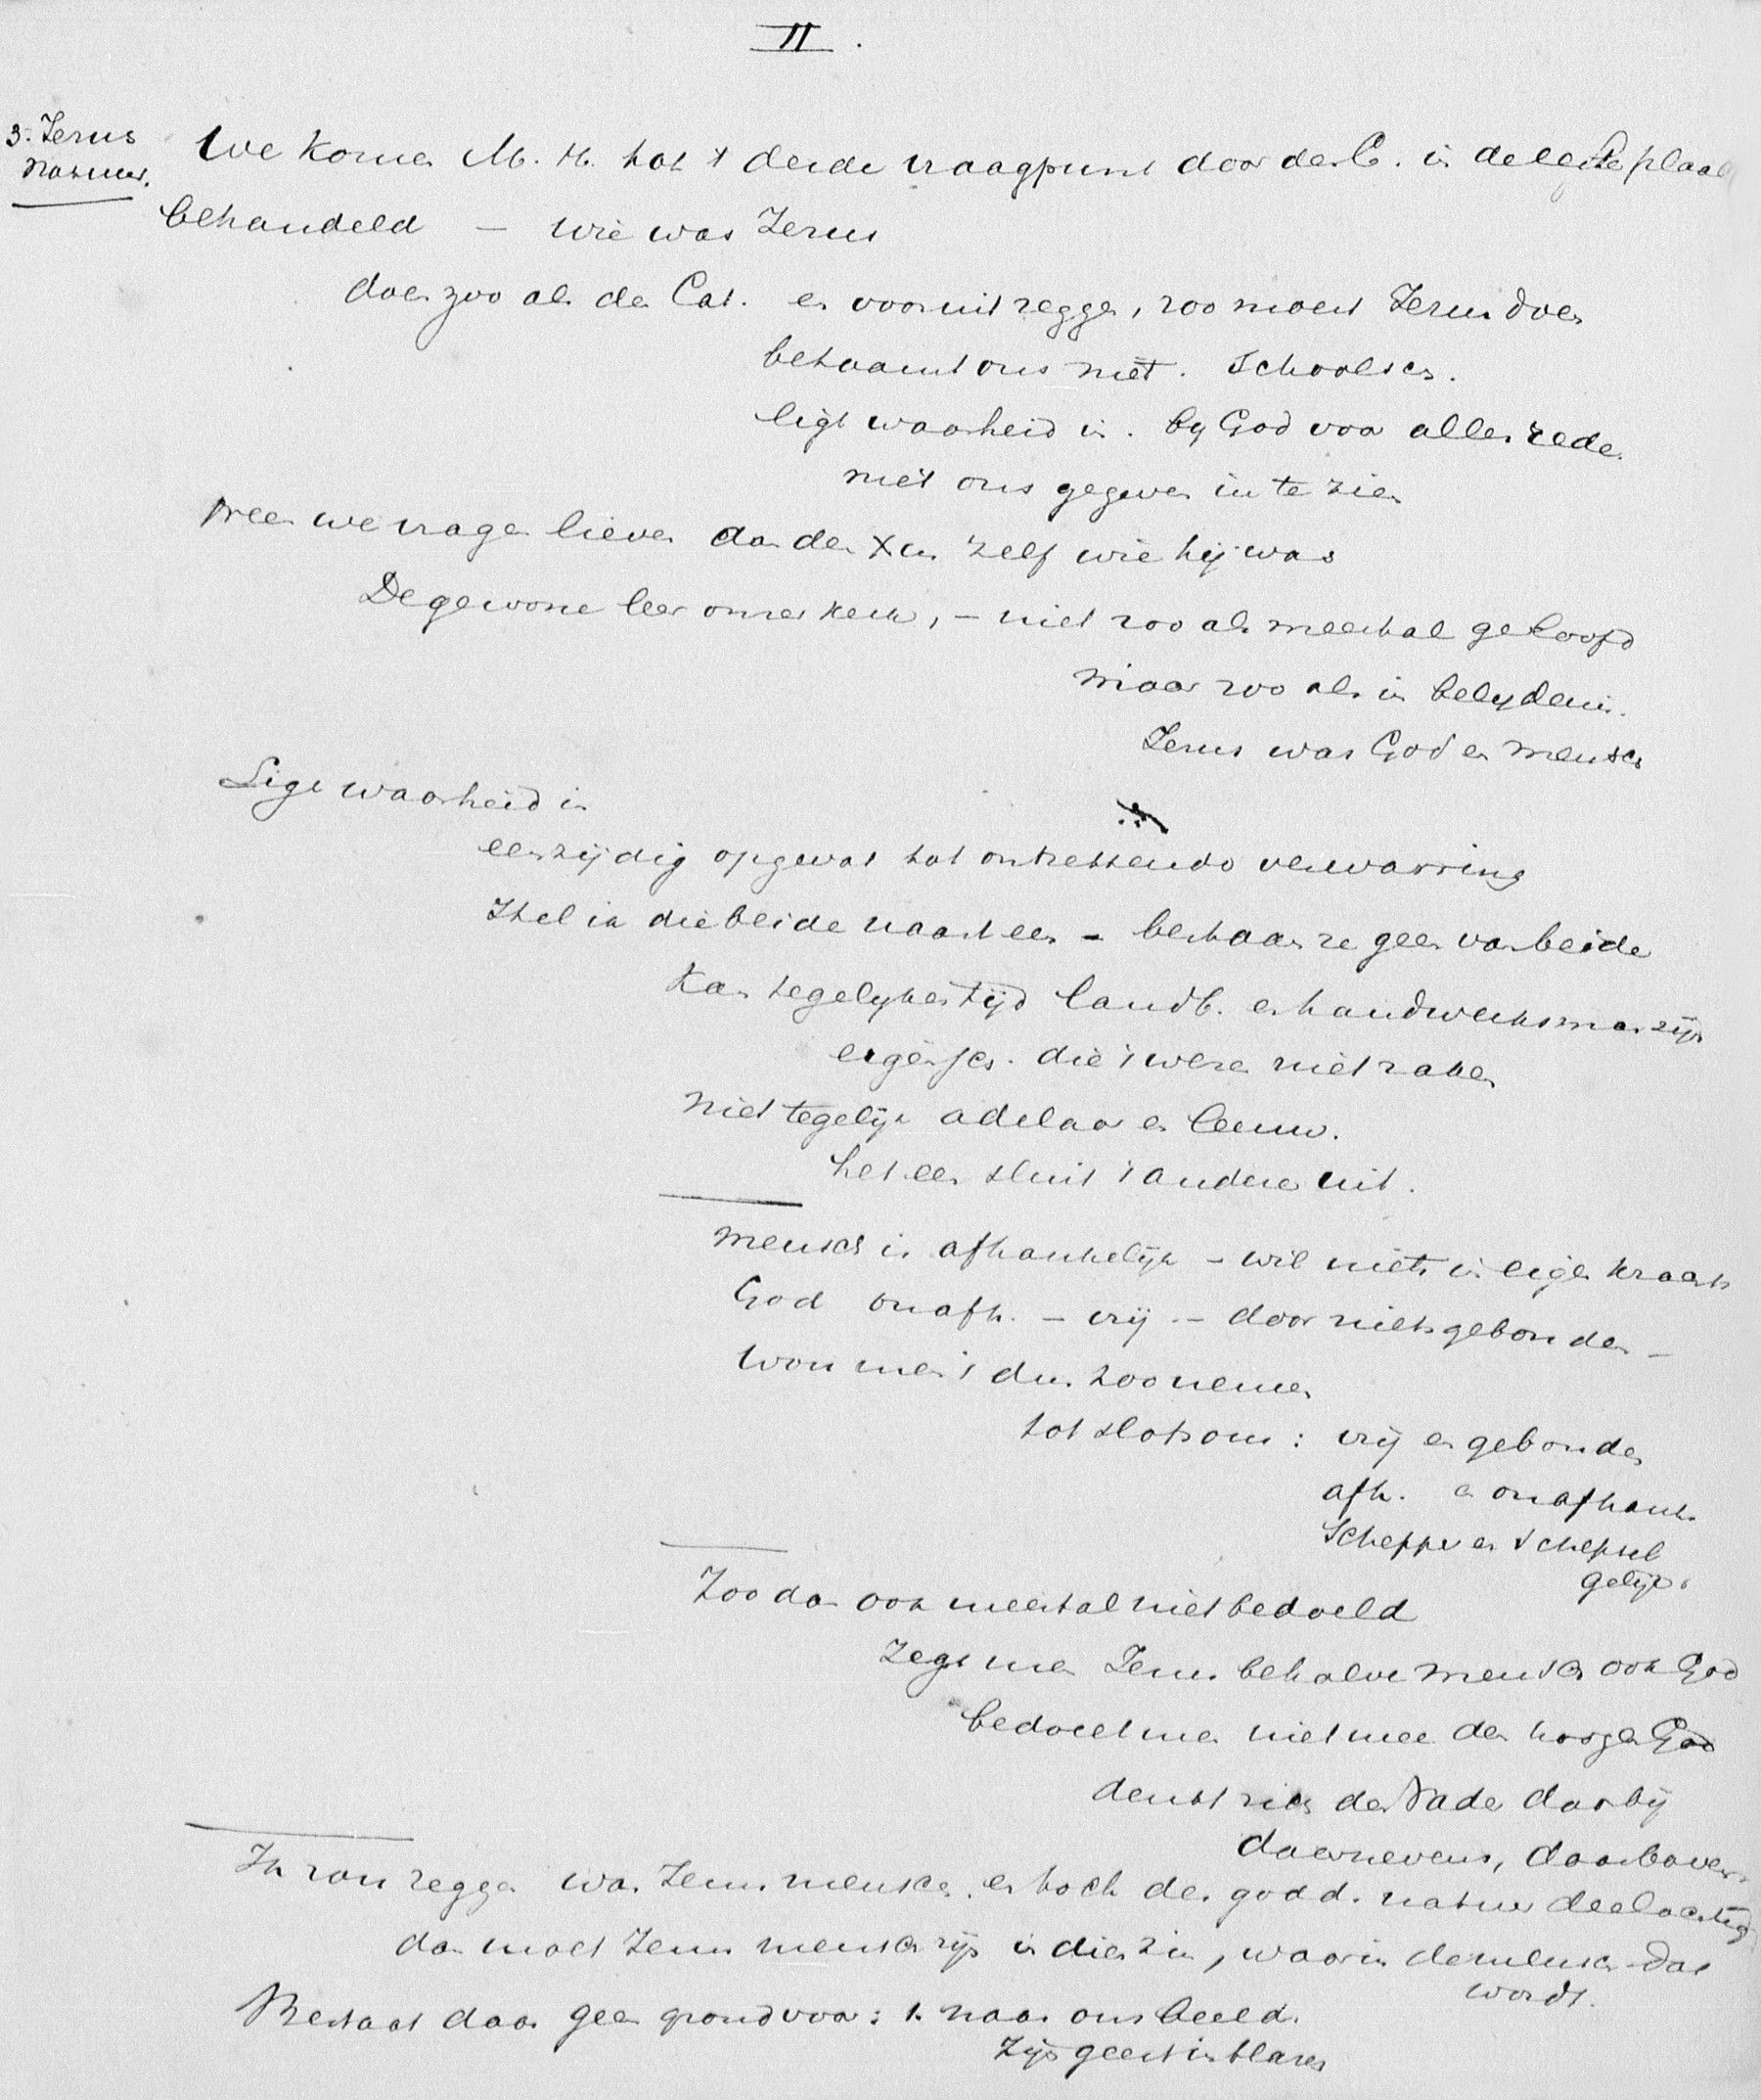 II.
3. Jezus
natuur.
We komen M. H. tot 't derde vraagpunt door den C. in de eerste plaats
behandeld — wie was Jezus
doen zoo als de Cat. en vooruit zeggen, zoo moest Jezus doen
betaamt ons niet. Schoolsch.
ligt waarheid in. by God voor alles rede.
niet ons gegeven in te zien
Neen we vragen liever aan den Xus zelf wie hij was
De gewone leer onzer kerk, – niet zoo als meestal geloofd
maar zoo als in belydenis.
Jezus was God en mensch
Ligt waarheid in
eenzijdig opgevat tot ontzettende verwarring
Stel ik die beide naast een – bestaan ze geen van beide
Kan tegelykertijd landb. en handwerksman zijn
eigensch. die 't weze niet raken
niet tegelijk adelaar en leeuw.
het een sluit 't andere uit.
mensch is afhankelijk – wil niets in eigen kracht
God onafh. – vrij – door niets gebonden –
Wou men 't dus zoo nemen
tot slotsom: vrij en gebonden
afh. en onafhank.
Schepper en schepsel
gelijk.
Zoo dan ook meestal niet bedoeld
Zegt men Jezus behalve mensch ook God
bedoelt men niet mee den hoogen God
denkt zich den Vader daarbij
daarnevens, daarboven
Ik zou zeggen was Jezus mensch. en toch der godd. natuur deelachtig
dan moet Jezus mensch zijn in dien zin, waarin de mensch dat
wordt.
Bestaat daar geen grond voor: 1. naar ons beeld.
Zijn geest inblazen